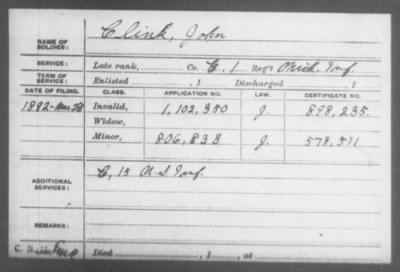 NAME OF SOLDIER: Clink, John
SERVICE: Late rank, Co. E, 1 Reg't Mich. Inf.
TERM OF SERVICE: Enlisted , 1 Discharged , 1
DATE OF FILING. CLASS. APPLICATION NO. LAW. CERTIFICATE NO.
1892- 28 Invalid, 1,102,350 J. 898,235.
Widow,
Minor, 806,833 J. 578,511
ADDITIONAL SERVICES: C, 15 U.S. Inf.
REMARKS:
C. Died , 1 , at